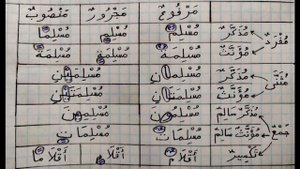 مَرْفُوعٌ مَجْرُورٌ مَنْصُوبٌ
مُذَكَّرٌ مُسْلِمٌ مُسْلِمٍ مُسْلِمًا
مُفْرَدٌ
مُؤَنَّثٌ مُسْلِمَةٌ مُسْلِمَةٍ مُسْلِمَةً
مُذَكَّرٌ مُسْلِمَانِ مُسْلِمَيْنِ
مُثَنًّى
مُؤَنَّثٌ مُسْلِمَتَانِ مُسْلِمَتَيْنِ
مُذَكَّرٌ سَالِمٌ مُسْلِمُونَ مُسْلِمِينَ
جَمْعٌ مُؤَنَّثٌ سَالِمٌ مُسْلِمَاتٌ مُسْلِمَاتٍ
تَكْسِيرٌ أَقْلَامٌ أَقْلَامٍ أَقْلَامًا